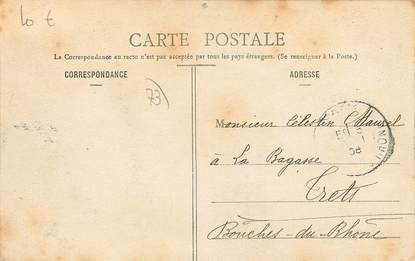 10 €
CARTE POSTALE
La Correspondance au recto n'est pas acceptée par tous les pays étrangers. (Se renseigner à la Poste.)
CORRESPONDANCE
ADRESSE
73
Monsieur Célestin Maurel
à La Bagasse
Trets
Bouches-du-Rhône
08